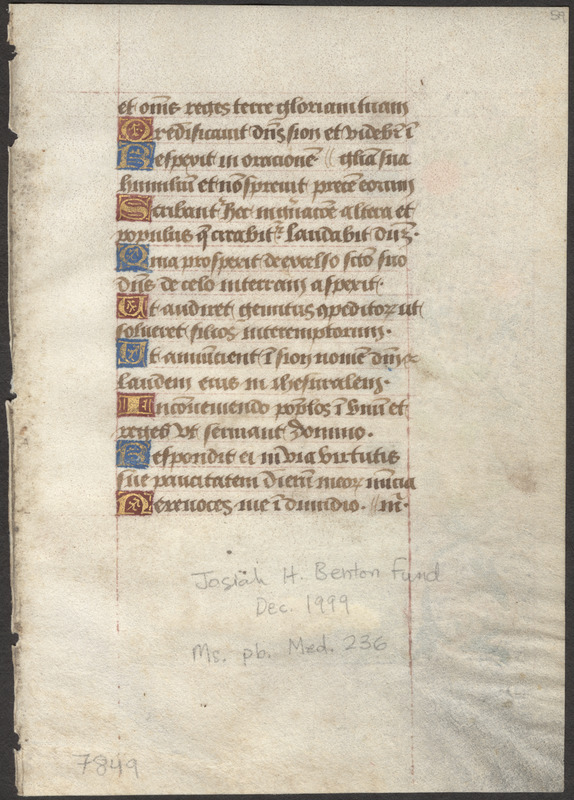 59
et om̄s reges terre gloriam tuam
Q redificauit dn̄s sion et videbit̄ ī
Respexit in orationē // glīa sua
humiliū et nō spreuit precē eorum
Scribant̄ hec in gn̄acōe altera et
populus q̄ creabit̄ laudabit dn̄z.
Quia prospexit de excelso scō suo
dn̄s de celo in terram aspexit.
Ut audiret gemitus ꝯpeditoꝝ ut
solueret filios interemptorum.
Ut annūcient ī sion nomē dn̄i ⁊
laudem eius in ihesrusalem.
In cōueniendo poplos ī vnū et
reges vt seruiant domino.
Respondit ei in via virtutis
sue paucitatem dierū meoꝝ nūcia
Ne reuoces me ī dimidio. // m̄.
Josiah H. Benton Fund
Dec. 1999
Ms. pb. Med. 236
7849